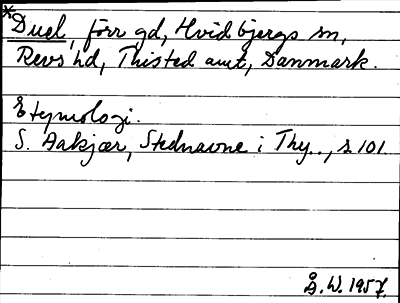 *Duel, förr gd, Hvidbjergs sn,
Revs hd, Thisted amt, Danmark.
Etymologi.
S. Aakjær, Stednavne i Thy.., s 101
Å.W. 1957.